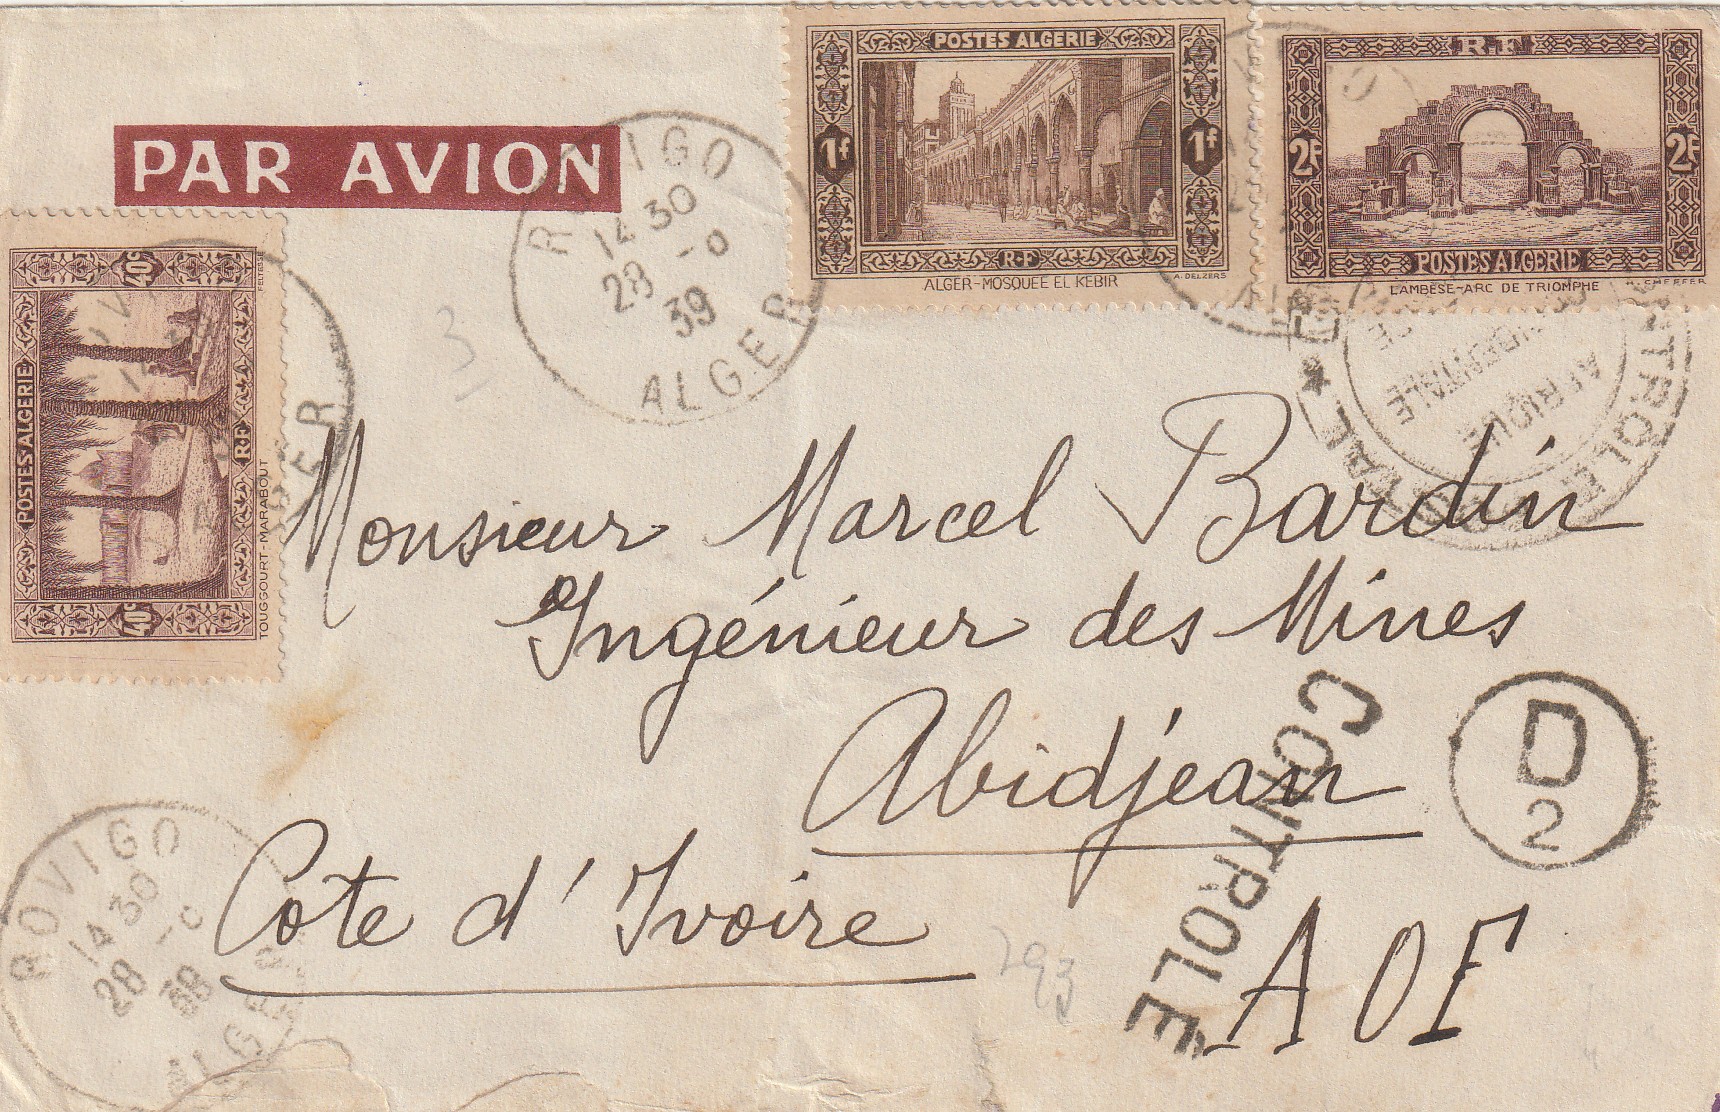 PAR AVION
POSTES ALGERIE
1f
1f
R·F
ALGER-MOSQUÉE EL KEBIR
A. DELZERS
R F
2F
2F
POSTES ALGERIE
LAMBÈSE-ARC DE TRIOMPHE
40c
POSTES-ALGERIE
R·F
40c
TOUGGOURT-MARABOUT
ROVIGO
14 30
28
39
ALGER
AFRIQUE
OCCIDENTALE
Monsieur Marcel Bardin
Ingénieur des Mines
Abidjean
Côte d'Ivoire
AOF
CONTROLÉ
D
2
3
293
ROVIGO
14 30
28
39
ALGER